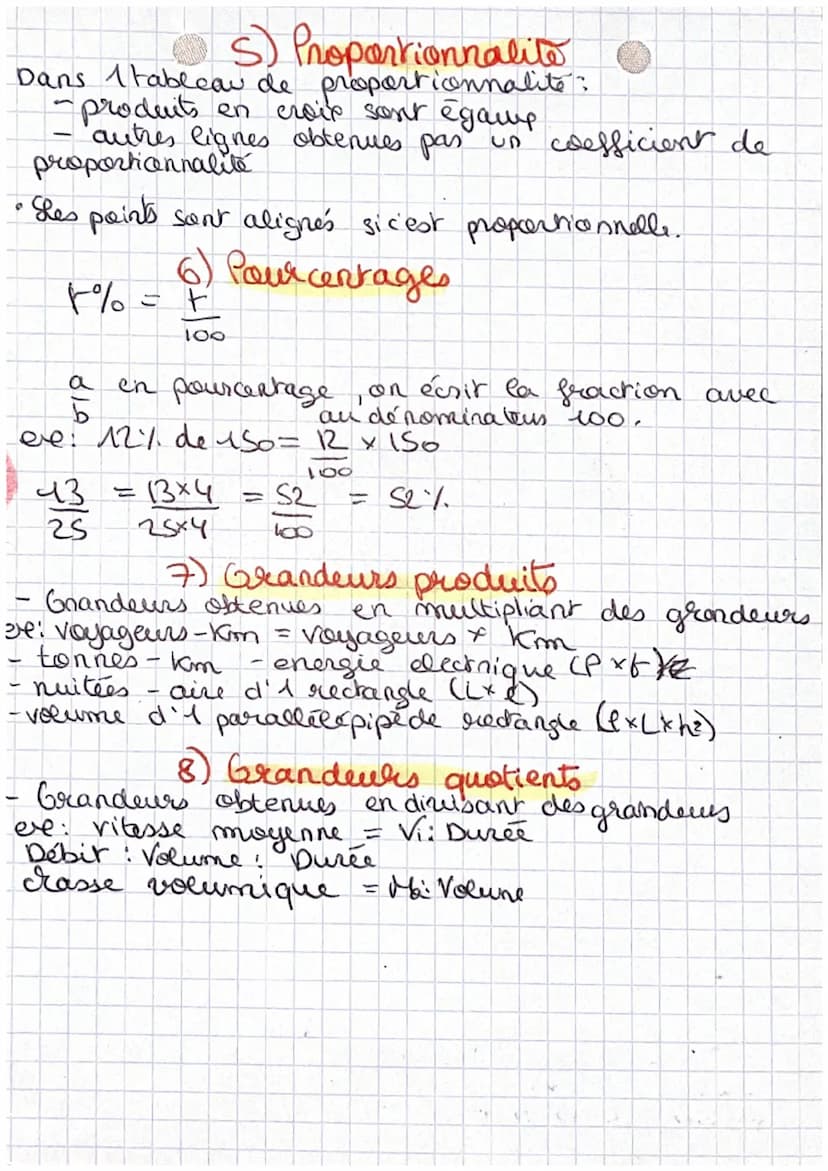 5) Proportionnalité
Dans 1 tableau de proportionnalité :
- produits en croix sont égaux
- autres lignes obtenues par un coefficient de
proportionnalité
• Les points sont alignés si c'est proportionnelle.
6) Pourcentages
t% = t/100
a/b en pourcentage, on écrit la fraction avec
au dénominateur 100.
ex: 12% de 150 = 12/100 × 150
13/25 = 13×4/25×4 = 52/100 = 52%
7) Grandeurs produits
- Grandeurs obtenues en multipliant des grandeurs
ex: voyageurs-Km = voyageurs × Km
- tonnes - Km - energie electrique (P × t)
- nuitées - aire d'1 rectangle (L × l)
- volume d'1 parallélépipède rectangle (l × L × h)
8) Grandeurs quotients
- Grandeurs obtenues en divisant des grandeurs
ex: vitesse moyenne = Vi : Durée
Débit : Volume : Durée
Masse volumique = Ma : Volume